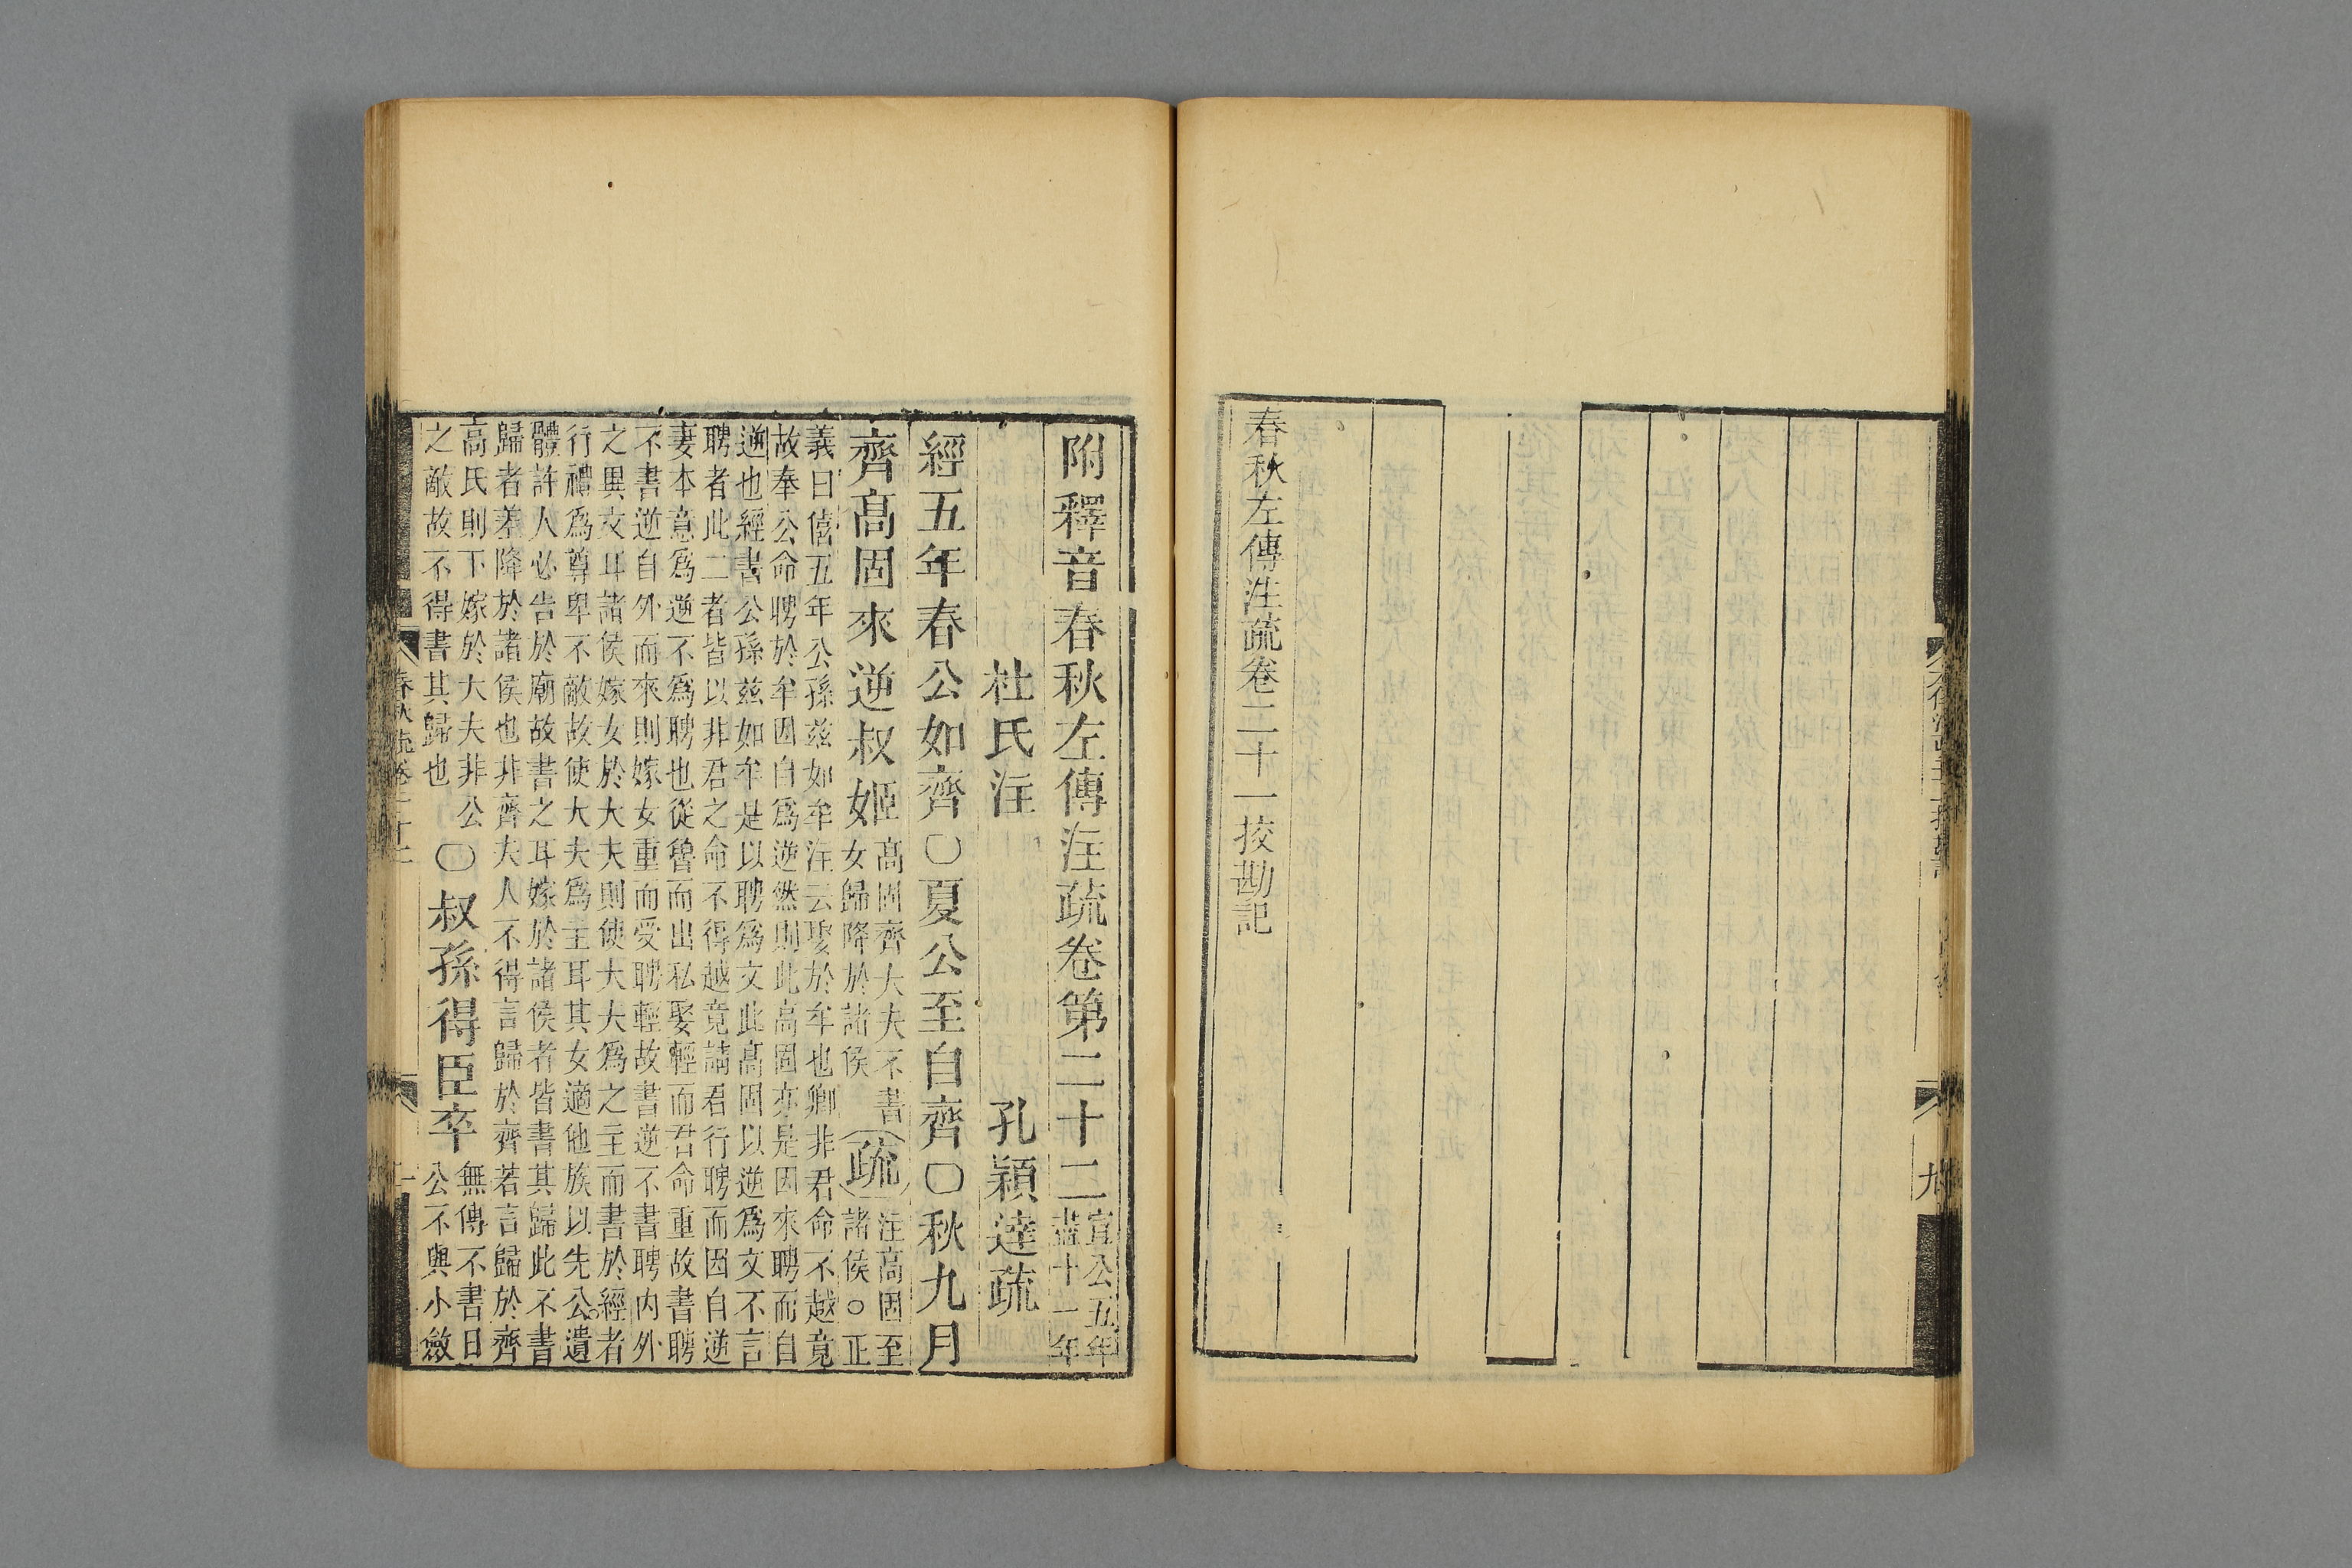 春秋左傳注疏卷二十一挍勘記
附釋音春秋左傳注疏卷第二十二宣公五年盡十一年
杜氏注 孔穎達疏
經五年春公如齊○夏公至自齊○秋九月
齊高固來逆叔姬高固齊大夫不書女歸降於諸侯疏注高固至諸侯○正
義曰僖五年公孫茲如牟注云娶於牟也卿非君命不越竟
故奉公命聘於牟因自爲逆然則此高固亦是因來聘而自
逆也經書公孫茲如牟是以聘爲文此高固以逆爲文不言
聘者此二者皆以非君之命不得越竟請君行聘而因自逆
妻本意爲逆不爲聘也從魯而出私娶輕而君命重故書聘
不書逆自外而來則嫁女重而受聘輕故書逆不書聘內外
之異文耳諸侯嫁女於大夫則使大夫爲之主而書於經者
行禮爲尊卑不敵故使大夫爲主耳其女適他族以先公遺
體許人必告於廟故書之耳嫁於諸侯者皆書其歸此不書
歸者差降於諸侯也非齊夫人不得言歸於齊若言歸於齊
高氏則下嫁於大夫非公
之敵故不得書其歸也
○叔孫得臣卒無傳不書日公不與小斂